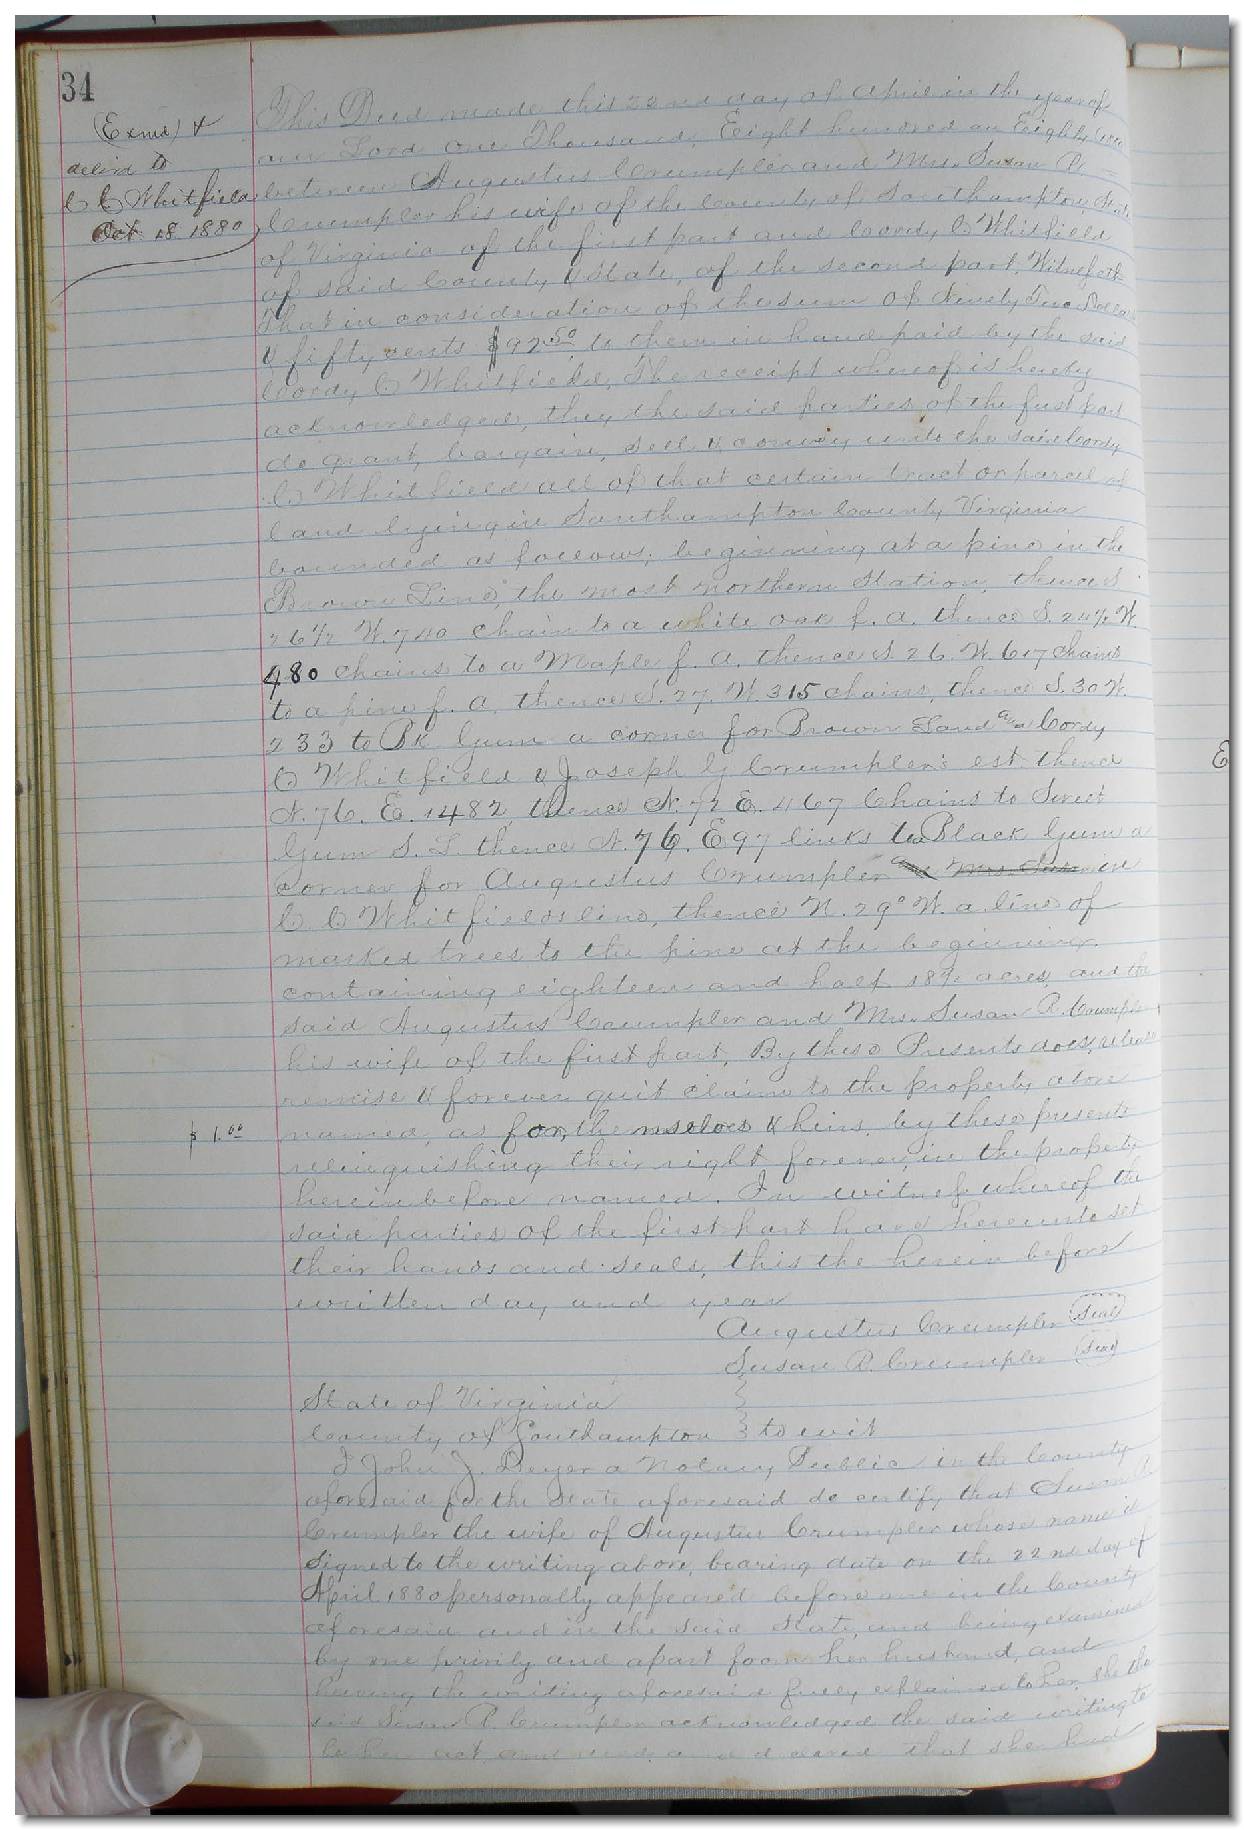 34
(Exmd) &
delivd to
C C Whitfield
Oct 18 1880
This Deed made this 22nd day of April in the year of
our Lord One Thousand, Eight hundred an Eighty
between Augustus Crumpler and Mrs. Susan R =
Crumpler his wife of the County of Southampton, State
of Virginia of the first part and Cordy C Whitfield
of said County & State, of the second part, Witnesseth
That in consideration of the sum of Ninety Two Dollars
& fifty cents $92.50 to them in hand paid by the said
Cordy C Whitfield, The receipt whereof is hereby
acknowledged, they the said parties of the first part
do grant, bargain, sell & convey unto the said Cordy
C Whitfield all of that certain tract or parcel of
land lying in Southampton County Virginia
bounded as follows; beginning at a pine in the
Brown Line, the most northern Station, thence S
26 1/2 W. 740 chain to a white oak f. a. thence S. 24 1/2 W.
480 chains to a Maple f. a. thence S. 26. W. 617 chains
to a pine f. a. thence S. 27. W. 315 chains, thence S. 30 W.
233 to Bk Gum a corner for Brown Land and Cordy
C Whitfield & Joseph G Crumpler's est thence
N. 76. E. 1482, thence N. 72 E. 467 Chains to Sweet
Gum S. L. thence N. 76. E 97 links to Black Gum a
corner for Augustus Crumpler and Mrs. Susa in
C. C Whitfields line, thence N. 29° W. a line of
marked trees to the pine at the beginning.
containing eighteen and half 18 1/2 acres, and the
said Augustus Crumpler and Mrs. Susan R. Crumpler
his wife of the first part, By these Presents does, release
remise & forever quit claim to the property above
$1.00
named, as for, themselves & heirs. by these presents
relinquishing their right forever, in the property
herein before named. In witness whereof the
said parties of the first part have hereunto set
their hands and seals, this the herein before
written day and year
Augustus Crumpler (Seal)
Susan R. Crumpler (Seal)
State of Virginia }
County of Southampton } to wit
I John J. Deyer a Notary Public in the County
aforesaid for the State aforesaid do certify that Susan R.
Crumpler the wife of Augustus Crumpler whose name is
signed to the writing above, bearing date on the 22nd day of
April 1880 personally appeared before me in the County
aforesaid and in the said State, and being examined
by me privily and apart from her husband, and
having the writing aforesaid fully explained to her, she the
said Susan R. Crumpler acknowledged the said writing to
be her act and deed, and declared that she had